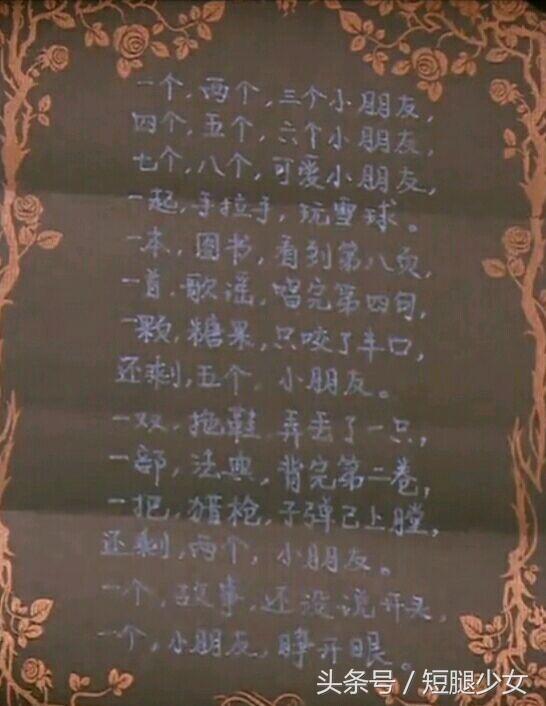 一个,两个,三个小朋友,
四个,五个,六个小朋友,
七个,八个,可爱小朋友,
一起,手拉手,玩雪球。
一本,图书,看到第八页,
一首,歌谣,唱完第四句,
一颗,糖果,只咬了半口,
还剩,五个,小朋友。
一双,拖鞋,弄丢了一只,
一部,法典,背完第二卷,
一把,猎枪,子弹已上膛,
还剩,两个,小朋友。
一个,故事,还没说开头,
一个,小朋友,睁开眼。
头条号 / 短腿少女